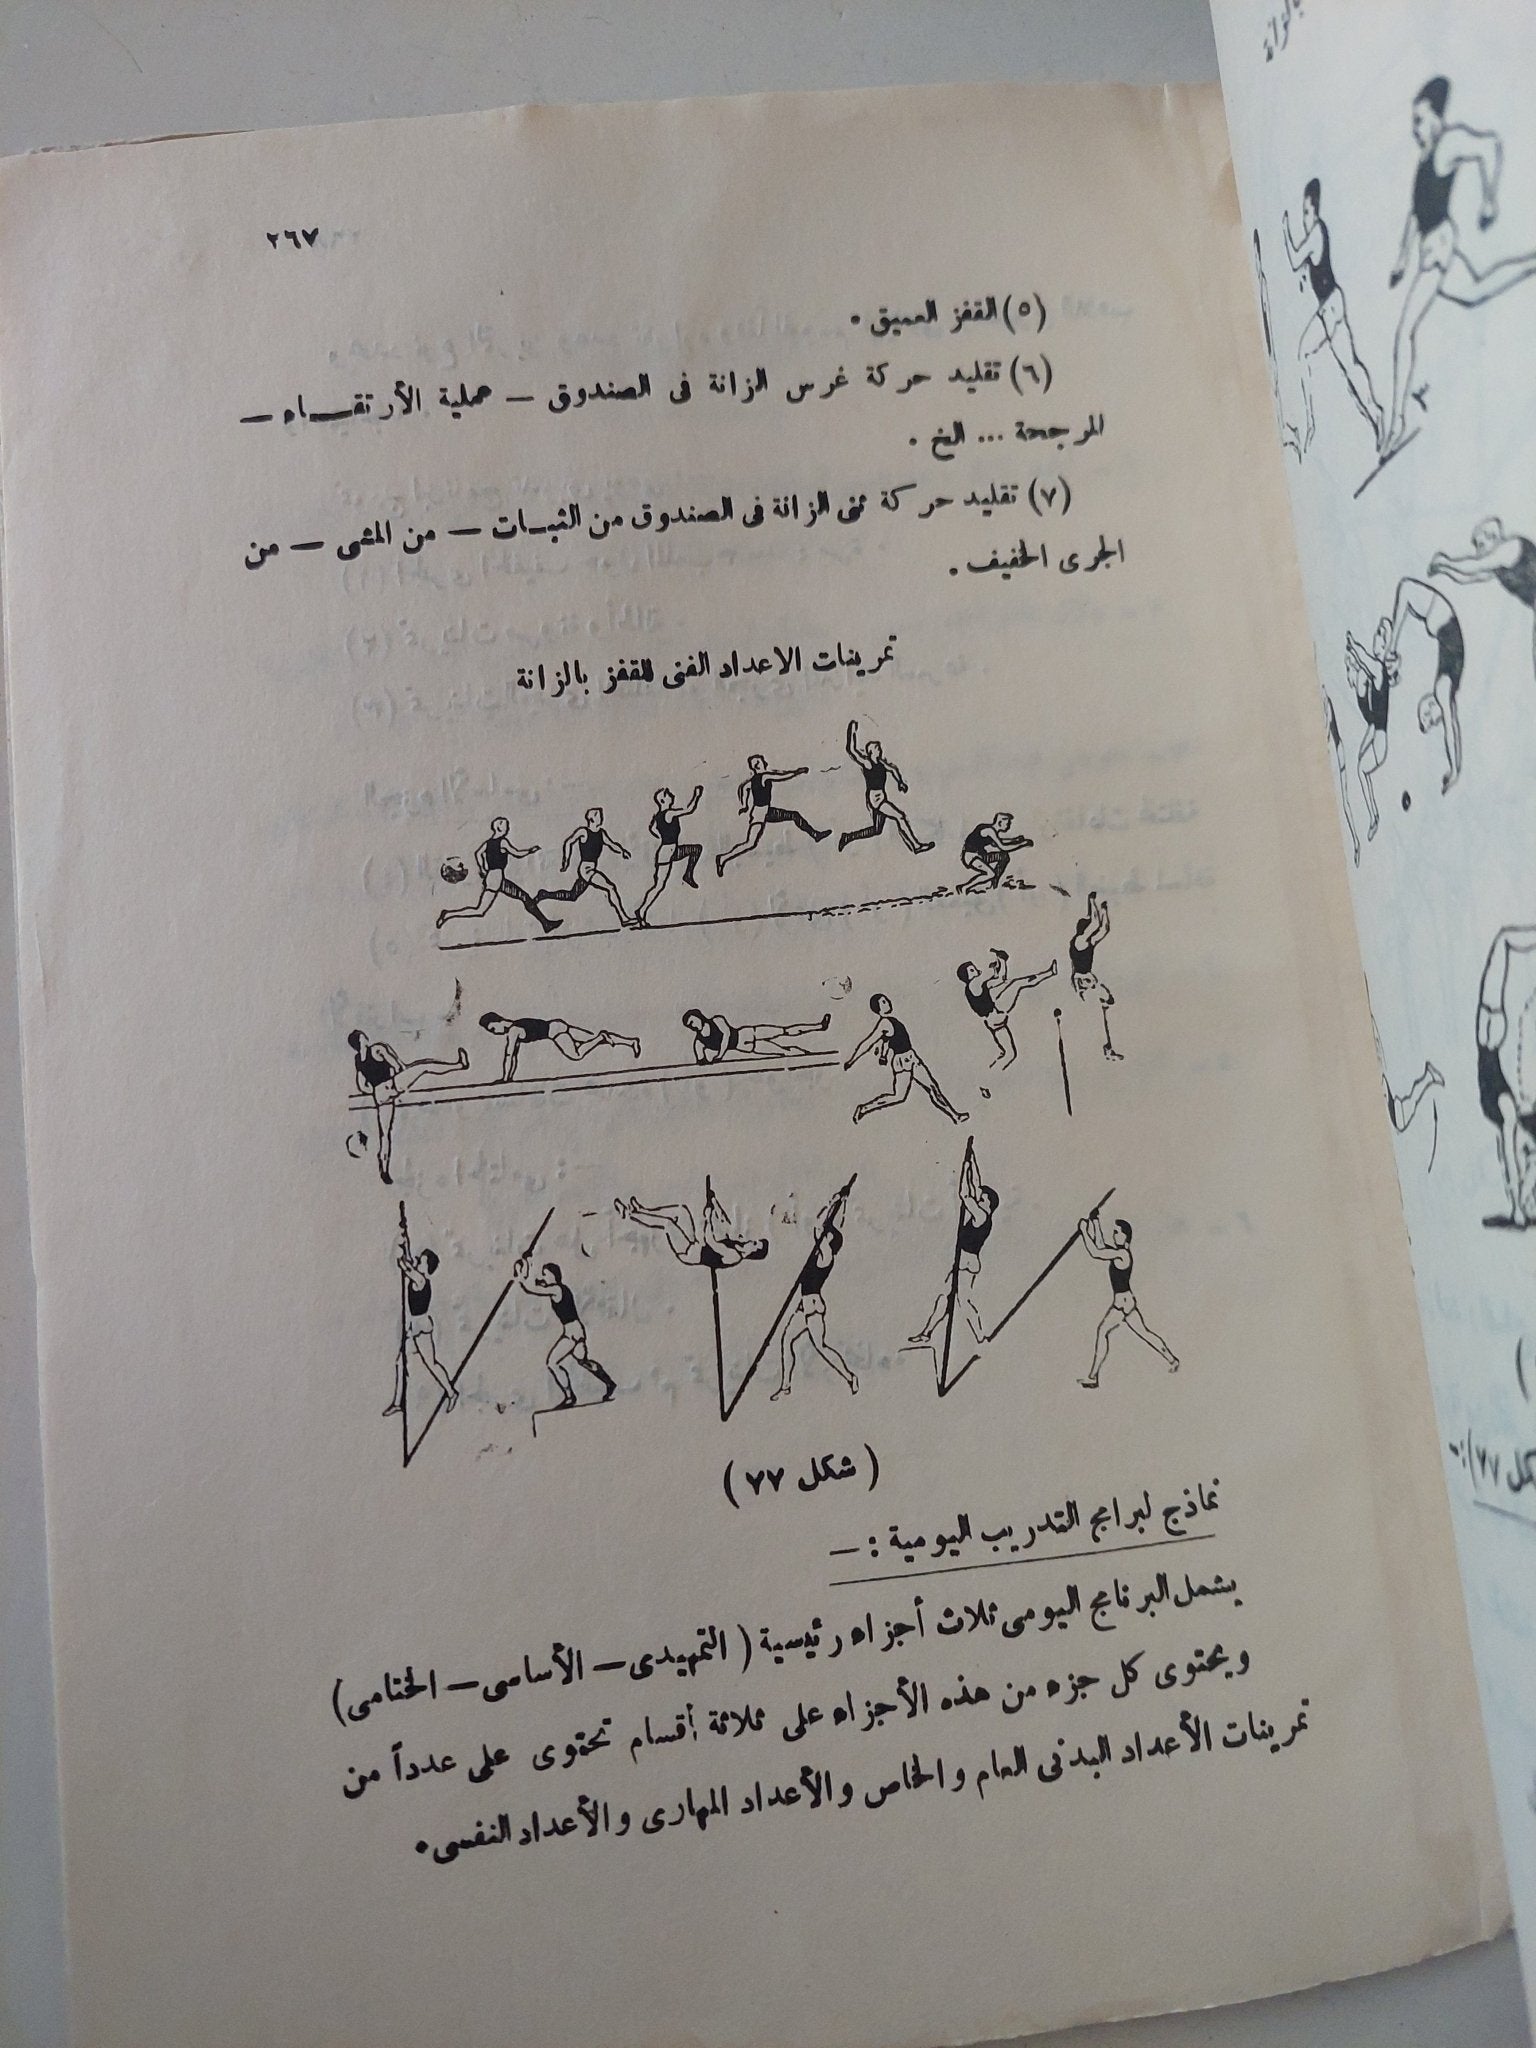 ٢٦٧
(٥) القفز العميق .
(٦) تقليد حركة غرس الزانة فى الصندوق — عملية الأرتقـــاء —
المرجحة ... الخ .
(٧) تقليد حركة ثنى الزانة فى الصندوق من الثبـات — من المشى — من
الجرى الخفيف .
تمرينات الاعداد الفنى للقفز بالزانة
(شكل ٧٧)
نماذج لبرامج التدريب اليومية : —
يشمل البرنامج اليومى ثلاث أجزاء رئيسية ( التمهيدى — الأساسى — الختامى)
ويحتوى كل جزء من هذه الأجزاء على ثلاثة أقسام تحتوى على عدداً من
تمرينات الأعداد البدنى العام والخاص والأعداد المهارى والأعداد النفسى .
بالزانة
٣